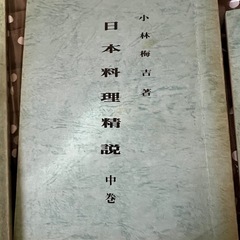 小林梅吉著
日本料理精説 中巻